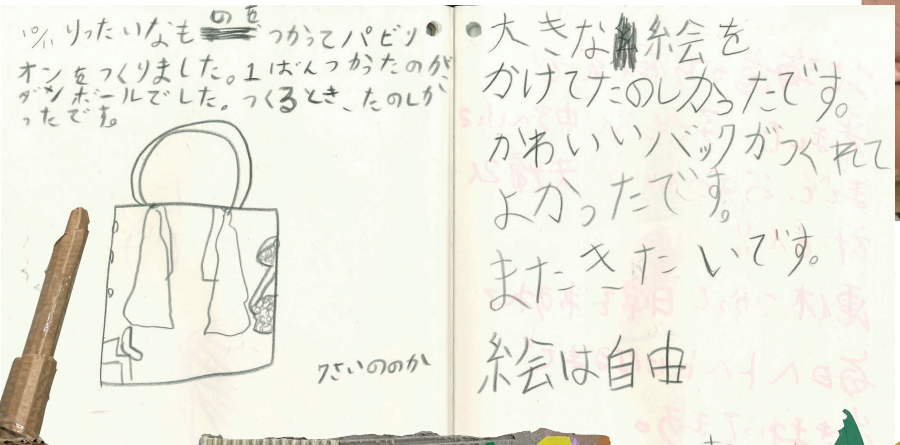 10/11 りったいなものを つかってパビリ
オンをつくりました。1ばんつかったのが、
ダンボールでした。つくるとき、たのしか
ったです。
7さいののか
大きな絵を
かけてたのしかったです。
かわいいバックがつくれて
よかったです。
またきたいです。
絵は自由